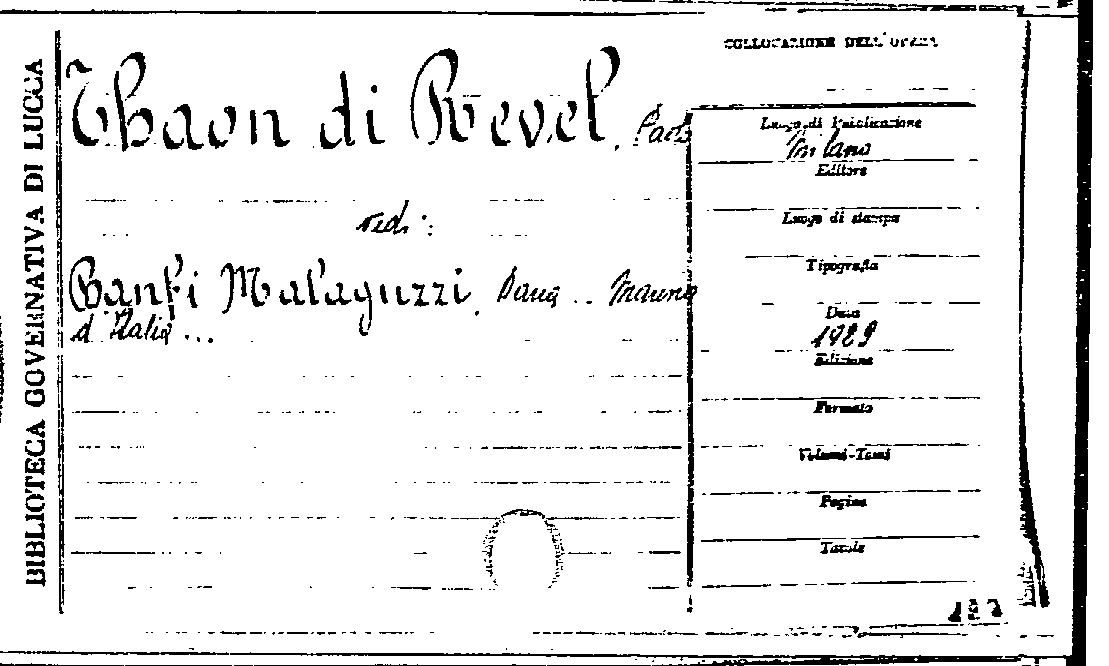 BIBLIOTECA GOVERNATIVA DI LUCCA
COLLOCAZIONE DELL'OPERA
Thaon di Revel, Paolo
vedi:
Banfi Malaguzzi, Daria ..
d'Italia ...
Luogo di Pubblicazione
Milano
Editore
Luogo di stampa
Tipografia
Data
1929
Edizione
Formato
Volumi-Tomi
Pagine
Tavole